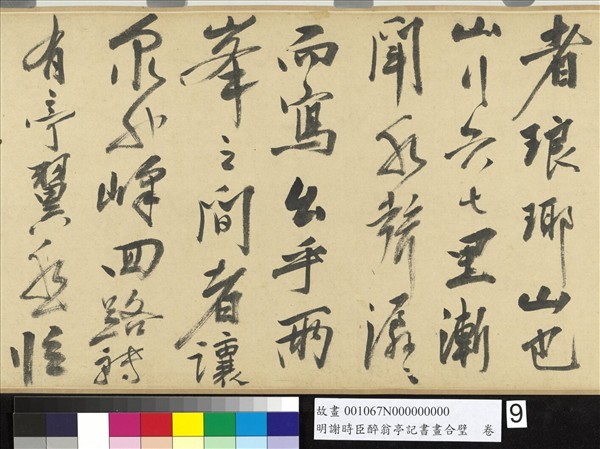 者琅琊山也
山行六七里漸
聞水聲潺〻
而寫出乎兩
峯之間者讓
泉也峰回路轉
有亭翼然臨
故畫 001067N000000000
明謝時臣醉翁亭記書畫合璧 卷
9